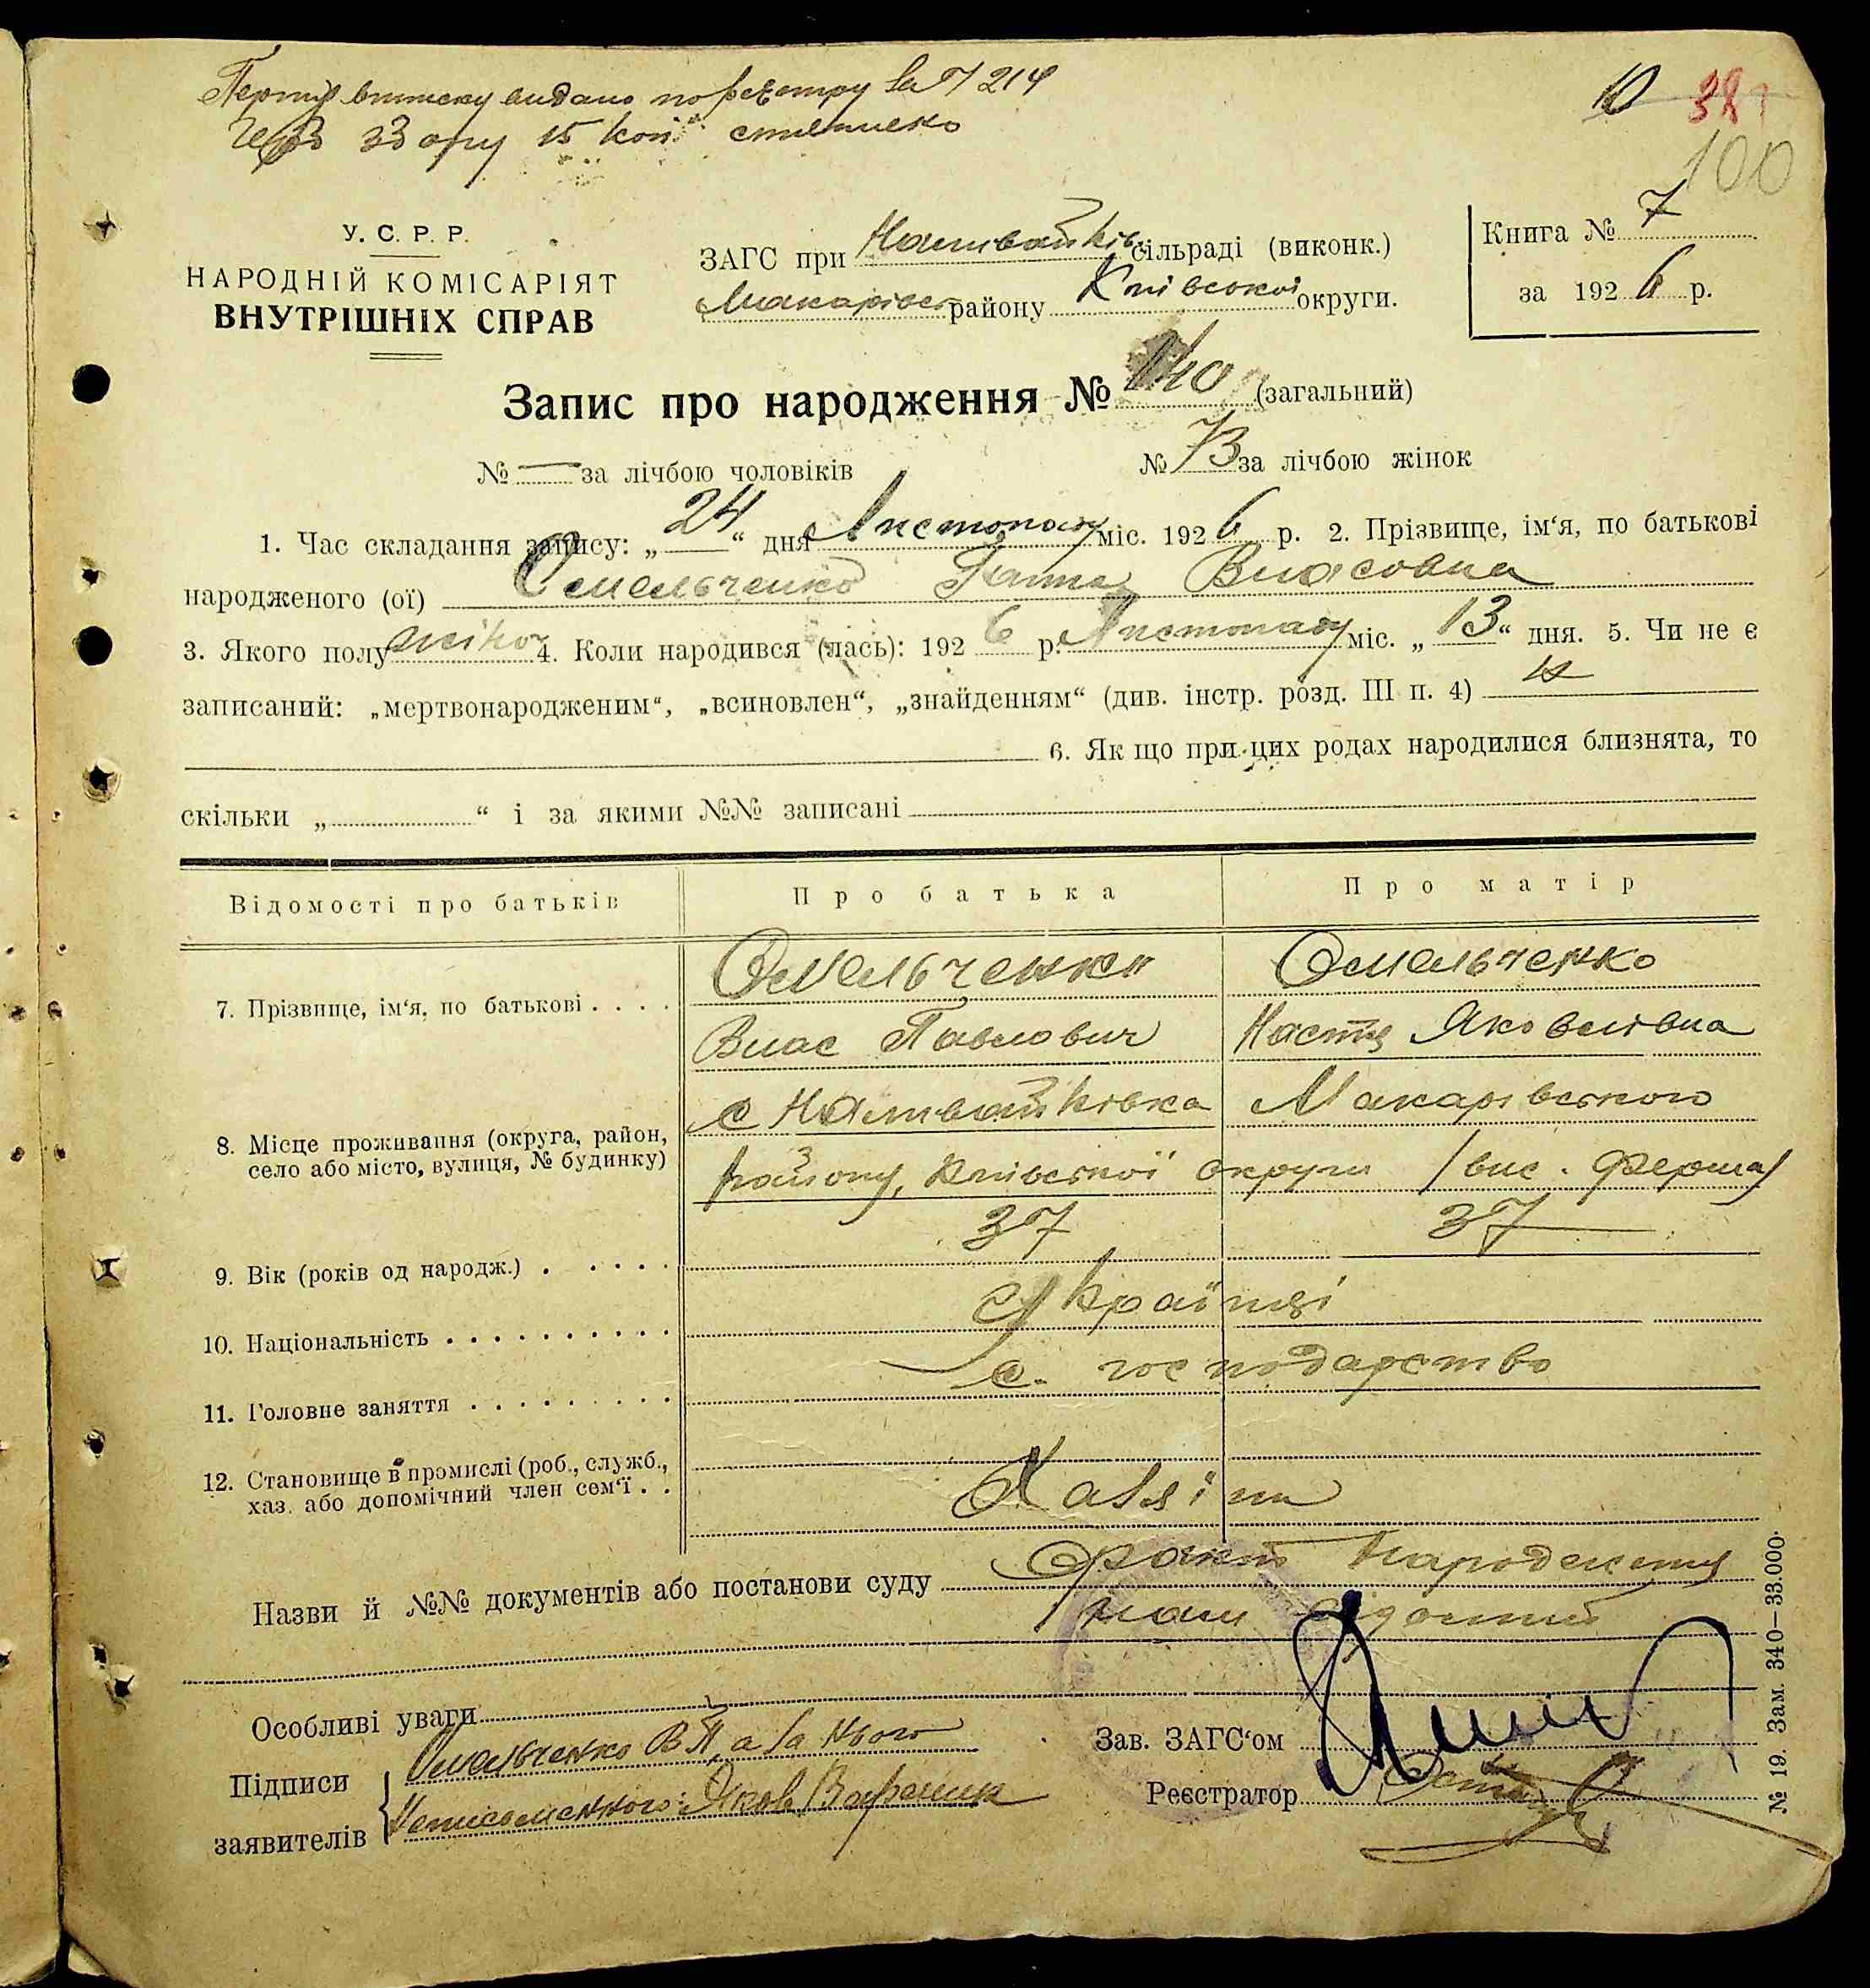 видано по реєстру за № 214
збору 15 коп.
10 381
100
У. С. Р. Р.
НАРОДНІЙ КОМІСАРІЯТ
ВНУТРІШНІХ СПРАВ
ЗАГС при Наливайків. сільраді (виконк.)
Макарівс. району Київської округи.
Книга № 7
за 1926 р.
Запис про народження № 140 (загальний)
№ — за лічбою чоловіків № 73 за лічбою жінок
1. Час складання запису: „24“ дня Листопаду міс. 1926 р. 2. Прізвище, ім‘я, по батькові
народженого (ої) Омельченко Ганна Власовна
3. Якого полу жіноч 4. Коли народився (лась): 1926 р. Листопаду міс. „13“ дня. 5. Чи не є
записаний: „мертвонародженим“, „всиновлен“, „знайденням“ (див. інстр. розд. III п. 4)
6. Як що при цих родах народилися близнята, то
скільки „ “ і за якими №№ записані
Відомості про батьків Про батька Про матір
7. Прізвище, ім‘я, по батькові . . . . Омельченко Омельченко
Влас Павлович Настя Яковлівна
8. Місце проживання (округа, район, село або місто, вулиця, № будинку) с Наливайківка Макарівського
району, Київської округи /вис. Ферма/
9. Вік (років од народж.) . . . . . 37 37
10. Національність . . . . . . . . . . Українці
11. Головне заняття . . . . . . . . . с. господарство
12. Становище в промислі (роб., служб.,
хаз. або допомічний член сем‘ї . . Хазяїни
Назви й №№ документів або постанови суду Факт народження
нам відомий
Особливі уваги
Підписи заявителів Омельченко В П, а за нього
неписьменного: Яков
Зав. ЗАГС‘ом
Реєстратор
№ 19. Зам. 340—33.000.